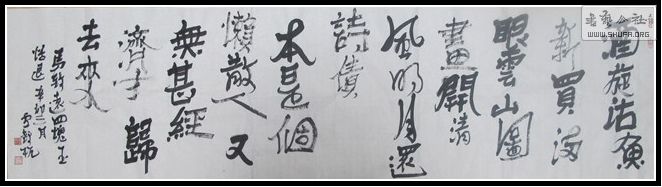 酒旋沽魚
新買滿
眼雲山圖
畫開清
風明月還
詩債
本是個
懶散人又
無甚經
濟才歸
去來
馬致遠四塊玉
恬退 辛卯 月
書藝公社
WWW.SHUFA.ORG